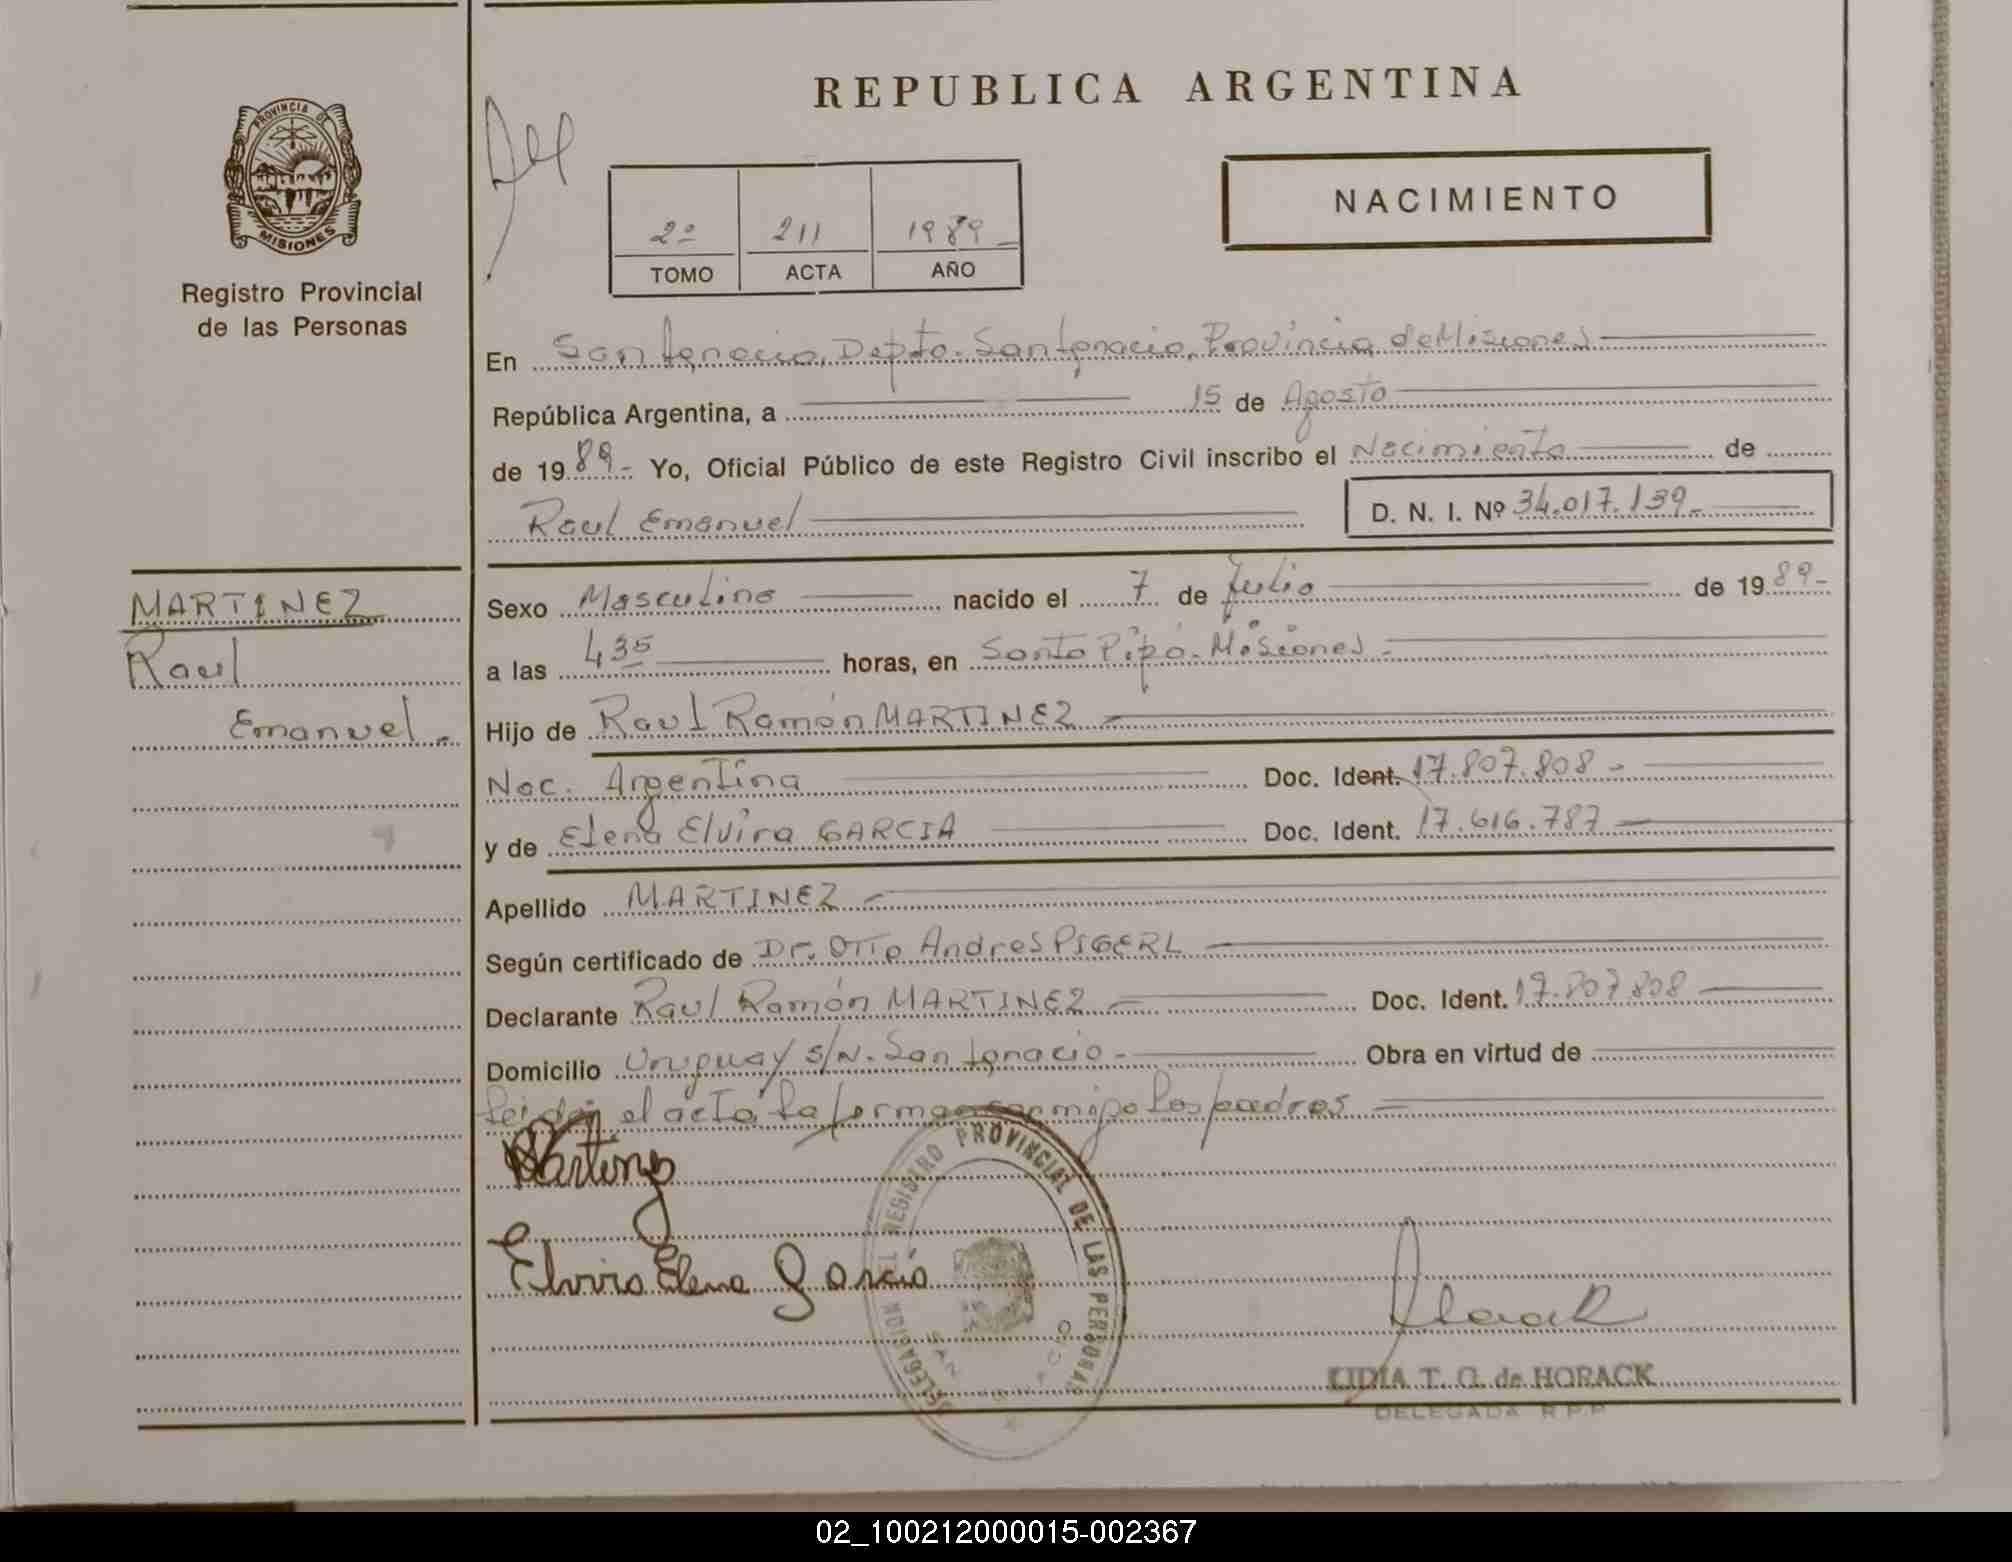 REPUBLICA ARGENTINA
PROVINCIA DE
MISIONES
Registro Provincial
de las Personas
2º 211 1989
TOMO ACTA AÑO
NACIMIENTO
En San Ignacio, Depto. San Ignacio, Provincia de Misiones
República Argentina, a 15 de Agosto
de 1989.- Yo, Oficial Público de este Registro Civil inscribo el Nacimiento de
Raul Emanuel D. N. I. Nº 34.017.139.-
MARTINEZ
Raul
Emanuel.-
Sexo Masculino nacido el 7 de Julio de 1989-
a las 435 horas, en Santo Pipó. Misiones.-
Hijo de Raul Ramón MARTINEZ -
Nac. Argentina Doc. Ident. 17.807.808 -
y de Elena Elvira GARCIA Doc. Ident. 17.616.787 -
Apellido MARTINEZ -
Según certificado de Dr. Otto Andres PIGERL
Declarante Raul Ramón MARTINEZ - Doc. Ident. 17.807.808
Domicilio Uruguay s/N. San Ignacio.- Obra en virtud de
Leida el acta la forman conmigo los padres
Martinez
Elvira Elena Garcia
DELEGACION DEL REGISTRO PROVINCIAL DE LAS PERSONAS
LIDIA T. G. de HORACK
DELEGADA R.P.P.
02_100212000015-002367